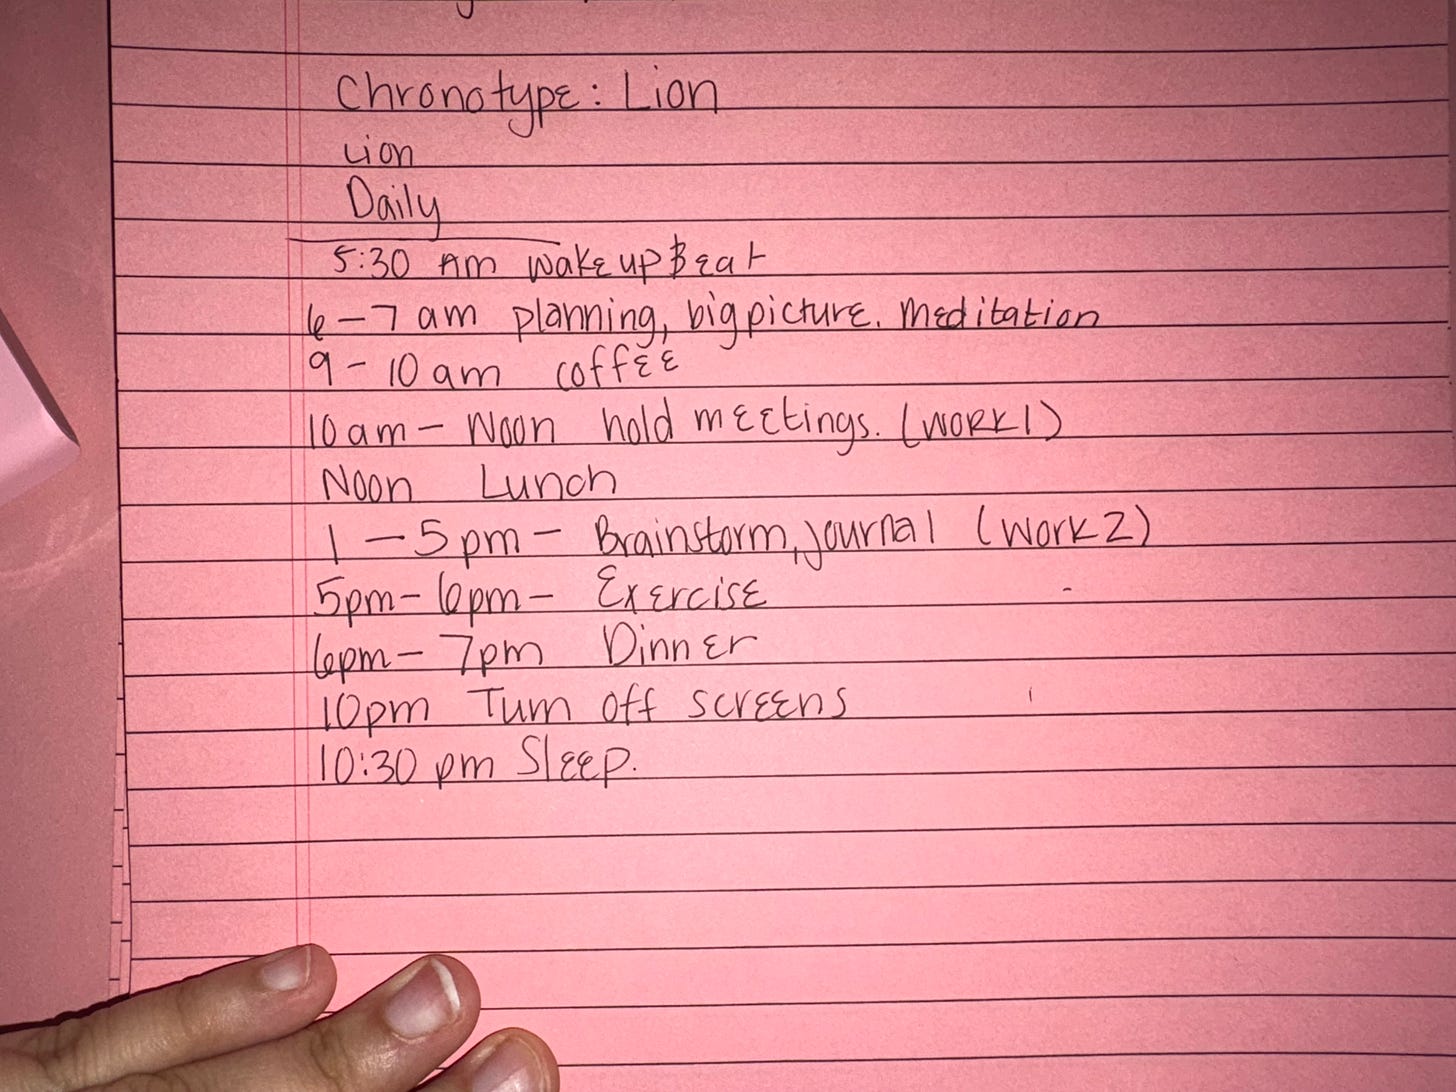 Chronotype: Lion
Lion
Daily
5:30 AM wake up & eat
6-7 am planning, big picture. meditation
9-10 am coffee
10 am - Noon hold meetings. (WORK 1)
Noon Lunch
1 - 5 pm - Brainstorm, journal (WORK 2)
5pm - 6pm - Exercise
6pm - 7pm Dinner
10pm Turn off screens
10:30 pm Sleep.